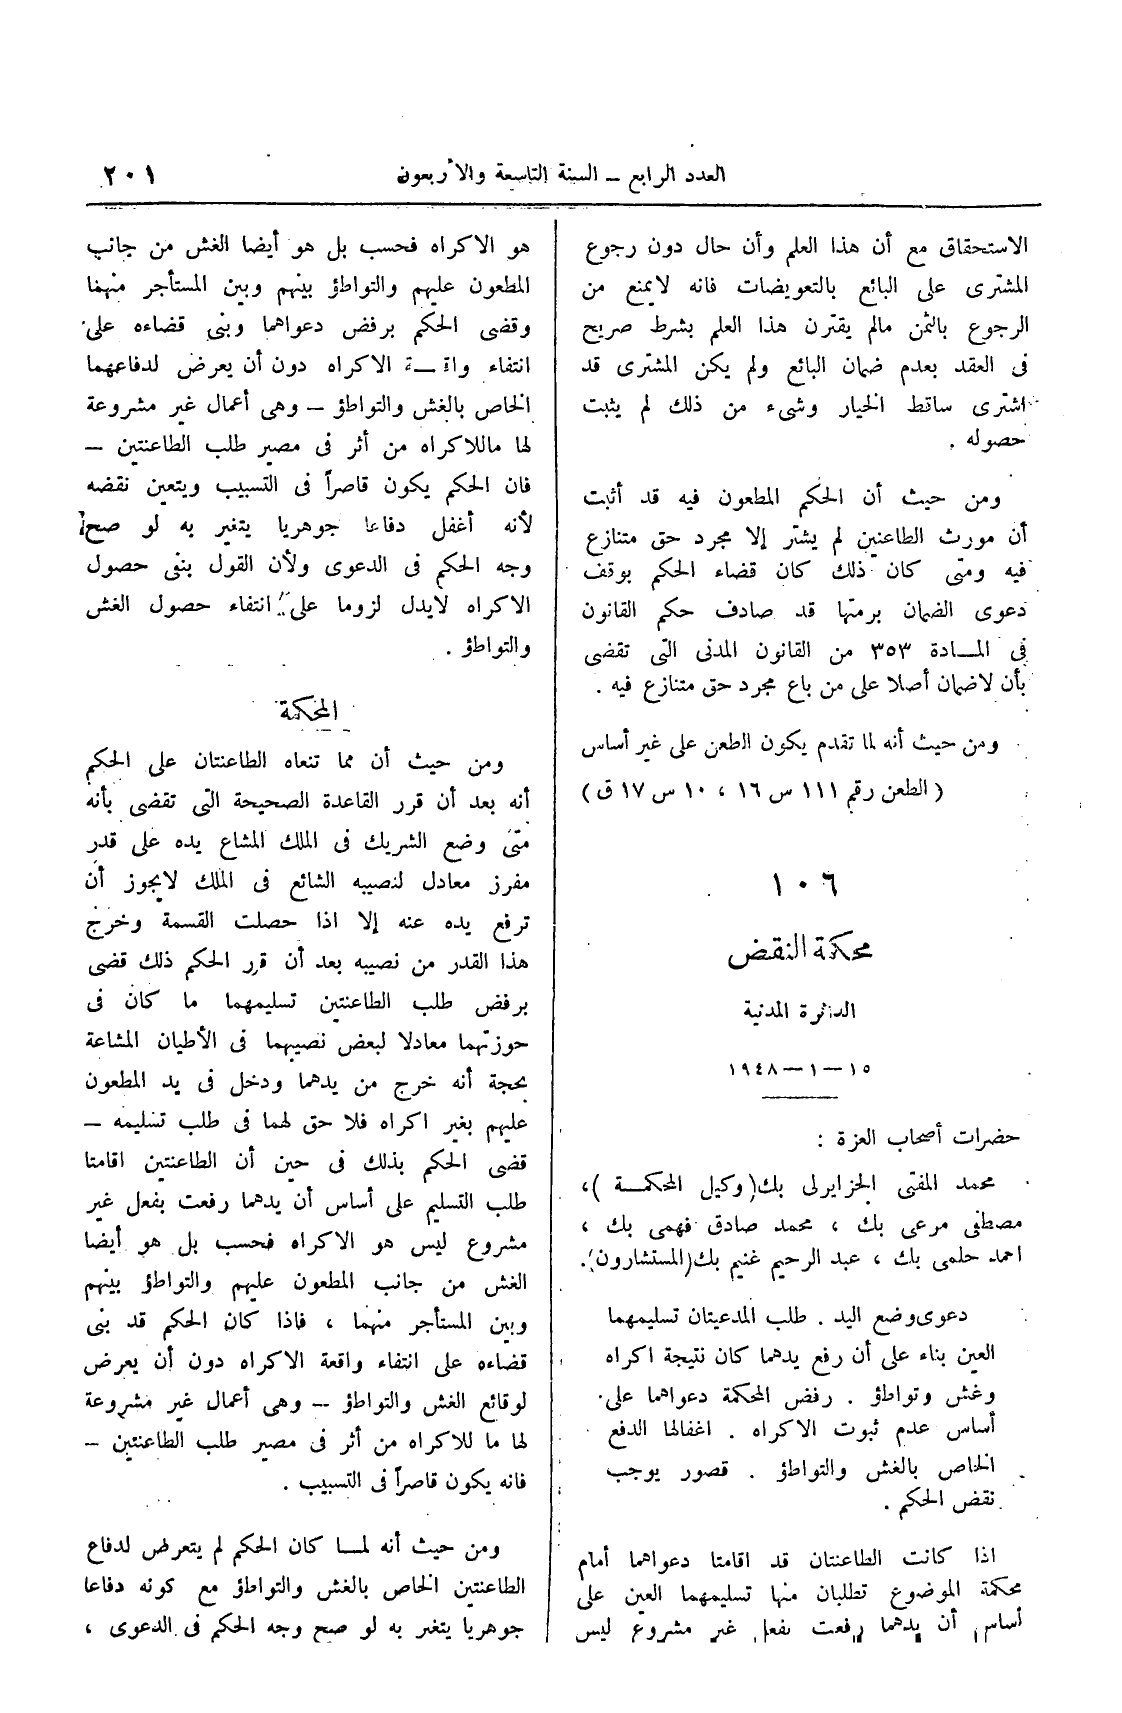 العدد الرابع – السنة التاسعة والأربعون
٢٠١
الاستحقاق مع أن هذا العلم وأن حال دون رجوع
المشترى على البائع بالتعويضات فانه لا يمنع من
الرجوع بالثمن مالم يقترن هذا العلم بشرط صريح
فى العقد بعدم ضمان البائع ولم يكن المشترى قد
اشترى ساقط الخيار وشىء من ذلك لم يثبت
حصوله .
ومن حيث أن الحكم المطعون فيه قد أثبت
أن مورث الطاعنين لم يشتر إلا مجرد حق متنازع
فيه ومتى كان ذلك كان قضاء الحكم بوقف
دعوى الضمان برمتها قد صادف حكم القانون
فى المادة ٣٥٣ من القانون المدنى التى تقضى
بأن لاضمان أصلا على من باع مجرد حق متنازع فيه .
ومن حيث أنه لما تقدم يكون الطعن على غير أساس
( الطعن رقم ١١١ س ١٦ ، ١٠ س ١٧ ق )
١٠٦
محكمة النقض
الدائرة المدنية
١٥ – ١ – ١٩٤٨
حضرات أصحاب العزة :
محمد المفتى الجزايرلى بك ( وكيل المحكمة ) ،
مصطفى مرعى بك ، محمد صادق فهمى بك ،
احمد حلمى بك ، عبد الرحيم غنيم بك (المستشارون) .
دعوى وضع اليد . طلب المدعيتان تسليمهما
العين بناء على أن رفع يدهما كان نتيجة اكراه
وغش وتواطؤ . رفض المحكمة دعواهما على
أساس عدم ثبوت الاكراه . اغفالها الدفع
الخاص بالغش والتواطؤ . قصور يوجب
نقض الحكم .
اذا كانت الطاعنتان قد اقامتا دعواهما أمام
محكمة الموضوع تطلبان منها تسليمهما العين على
أساس أن يدهما رفعت بفعل غير مشروع ليس
هو الاكراه فحسب بل هو أيضا الغش من جانب
المطعون عليهم والتواطؤ بينهم وبين المستأجر منهما
وقضى الحكم برفض دعواهما وبنى قضاءه على
انتفاء واقعة الاكراه دون أن يعرض لدفاعهما
الخاص بالغش والتواطؤ – وهى أعمال غير مشروعة
لها ماللاكراه من أثر فى مصير طلب الطاعنتين –
فان الحكم يكون قاصراً فى التسبيب ويتعين نقضه
لأنه أغفل دفاعا جوهريا يتغير به لو صح
وجه الحكم فى الدعوى ولأن القول بنفى حصول
الاكراه لايدل لزوما على انتفاء حصول الغش
والتواطؤ .
المحكمة
ومن حيث أن مما تنعاه الطاعنتان على الحكم
أنه بعد أن قرر القاعدة الصحيحة التى تقضى بأنه
متى وضع الشريك فى الملك المشاع يده على قدر
مفرز معادل لنصيبه الشائع فى الملك لايجوز أن
ترفع يده عنه إلا اذا حصلت القسمة وخرج
هذا القدر من نصيبه بعد أن قرر الحكم ذلك قضى
برفض طلب الطاعنتين تسليمهما ما كان فى
حوزتهما معادلا لبعض نصيبهما فى الأطيان المشاعة
بحجة أنه خرج من يدهما ودخل فى يد المطعون
عليهم بغير اكراه فلا حق لهما فى طلب تسليمه –
قضى الحكم بذلك فى حين أن الطاعنتين اقامتا
طلب التسليم على أساس أن يدهما رفعت بفعل غير
مشروع ليس هو الاكراه فحسب بل هو أيضا
الغش من جانب المطعون عليهم والتواطؤ بينهم
وبين المستأجر منهما ، فاذا كان الحكم قد بنى
قضاءه على انتفاء واقعة الاكراه دون أن يعرض
لوقائع الغش والتواطؤ – وهى أعمال غير مشروعة
لها ما للاكراه من أثر فى مصير طلب الطاعنتين –
فانه يكون قاصراً فى التسبيب .
ومن حيث أنه لما كان الحكم لم يتعرض لدفاع
الطاعنتين الخاص بالغش والتواطؤ مع كونه دفاعا
جوهريا يتغير به لو صح وجه الحكم فى الدعوى ،